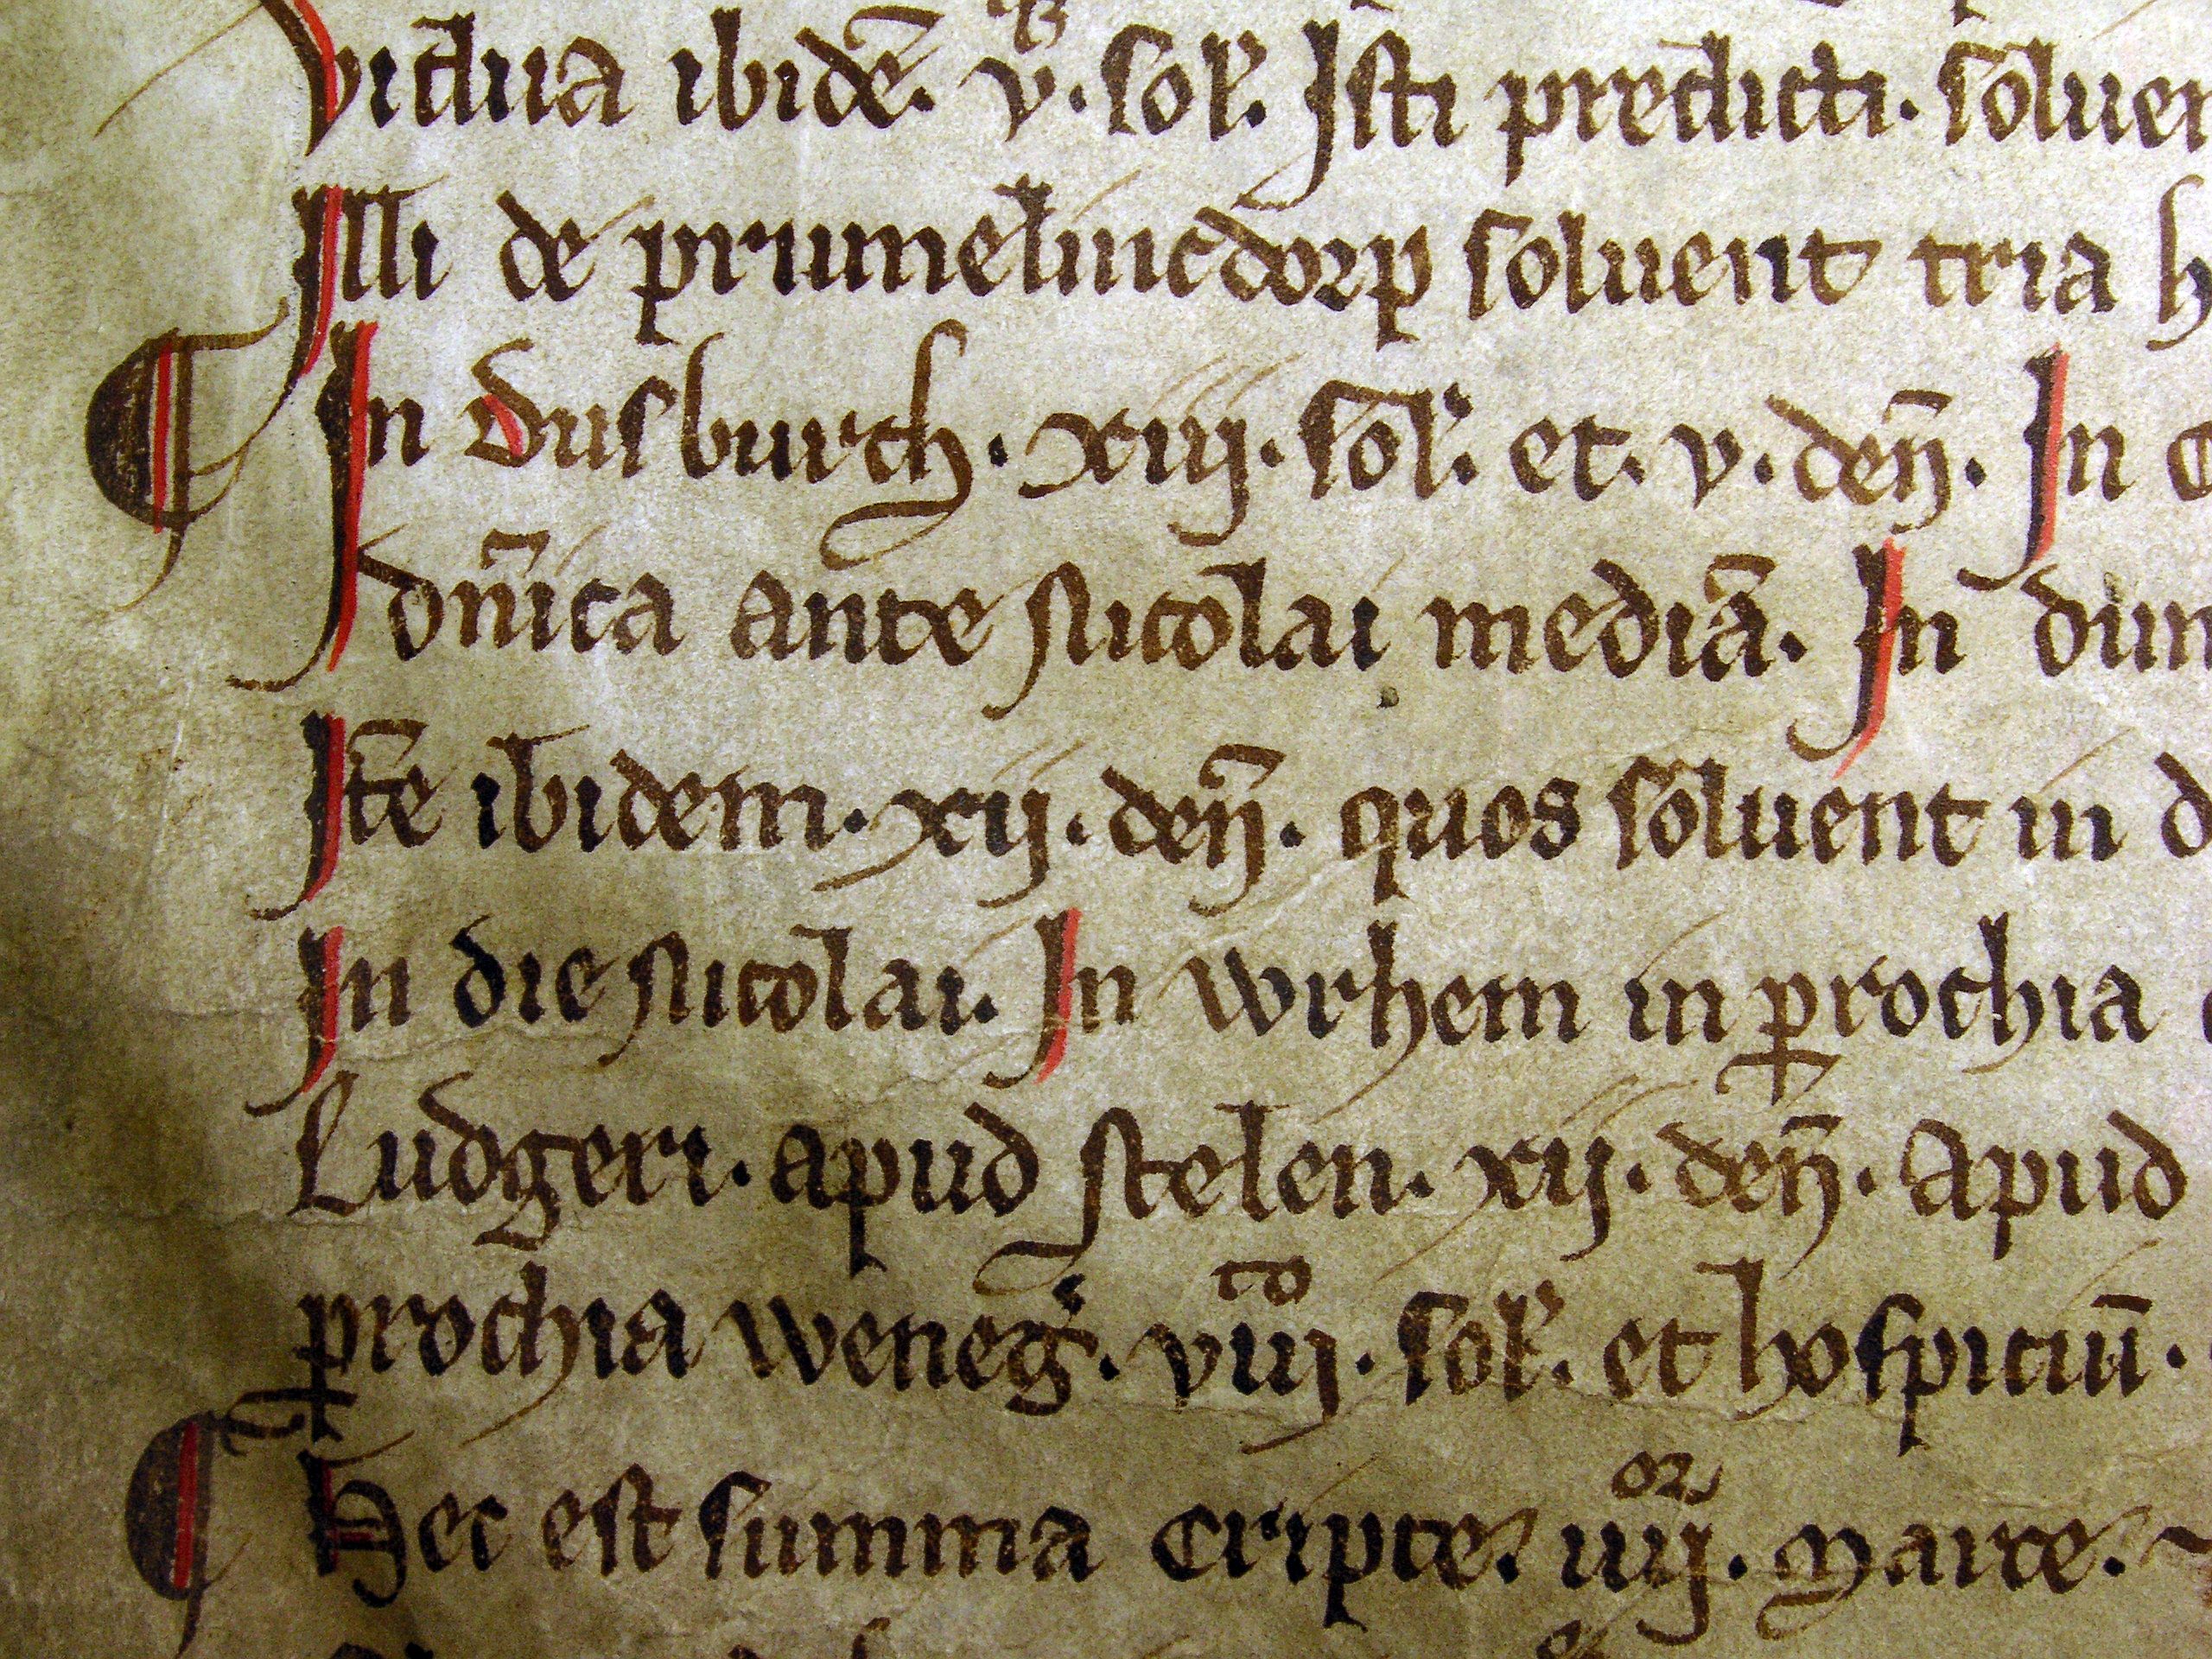 vidua ibidē. v. sol'. Isti predicti. soluen
Illi de prumelincdorp soluent tria h
¶ In dusburch. xiij. sol'. et. v. deñ. In
dn̄ica ante Nicolai mediā. In dun
Itē ibidem. xij. deñ. quos soluent in d
In die Nicolai. In wrhem in ꝑrochia
Ludgeri. apud stelen. xij. deñ. Apud
ꝑrochia weneg'. viijto. sol'. et hospiciū.
¶ Hec est summa cripte. iiijor. Marce.